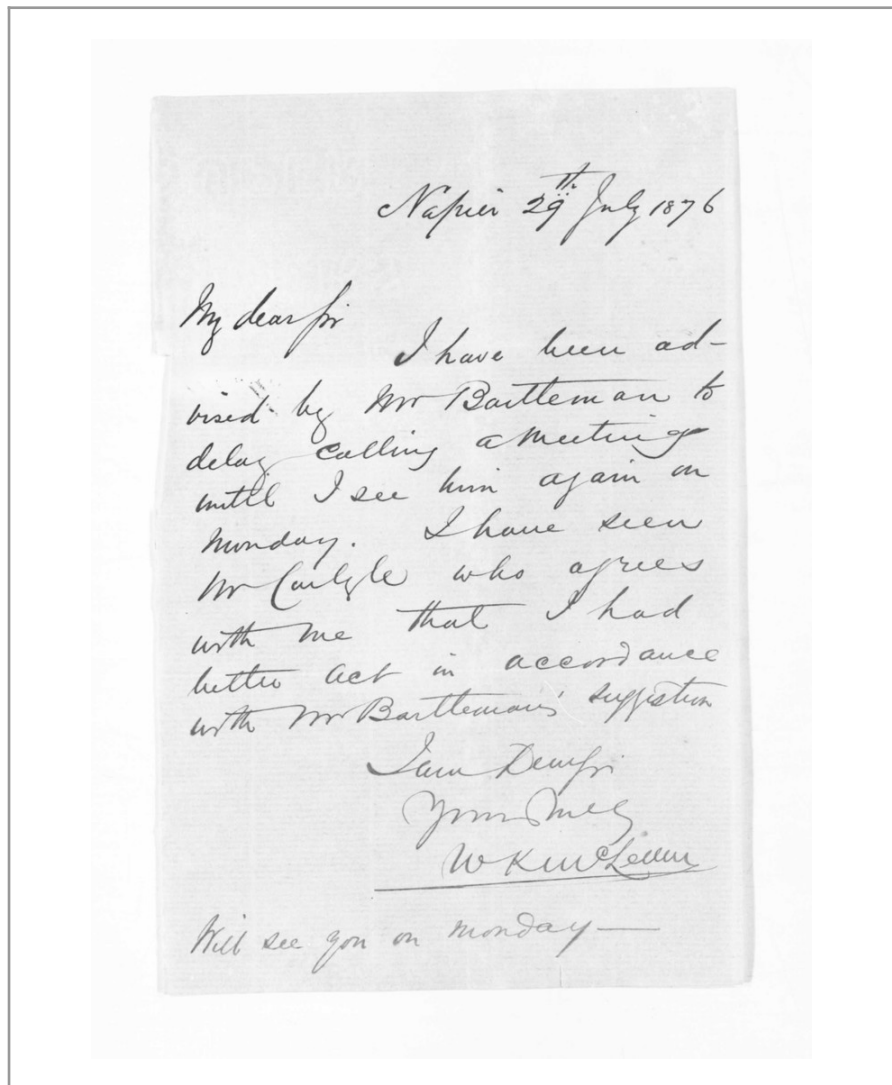 Napier 29th July 1876
My dear Sir
I have been ad-
vised by Mr Bartleman to
delay calling a Meeting
until I see him again on
Monday. I have seen
Mr Carlyle who agrees
with me that I had
better act in accordance
with Mr Bartleman's suggestion
I am Dear Sir
Yours truly
W K McLean
Will see you on Monday—